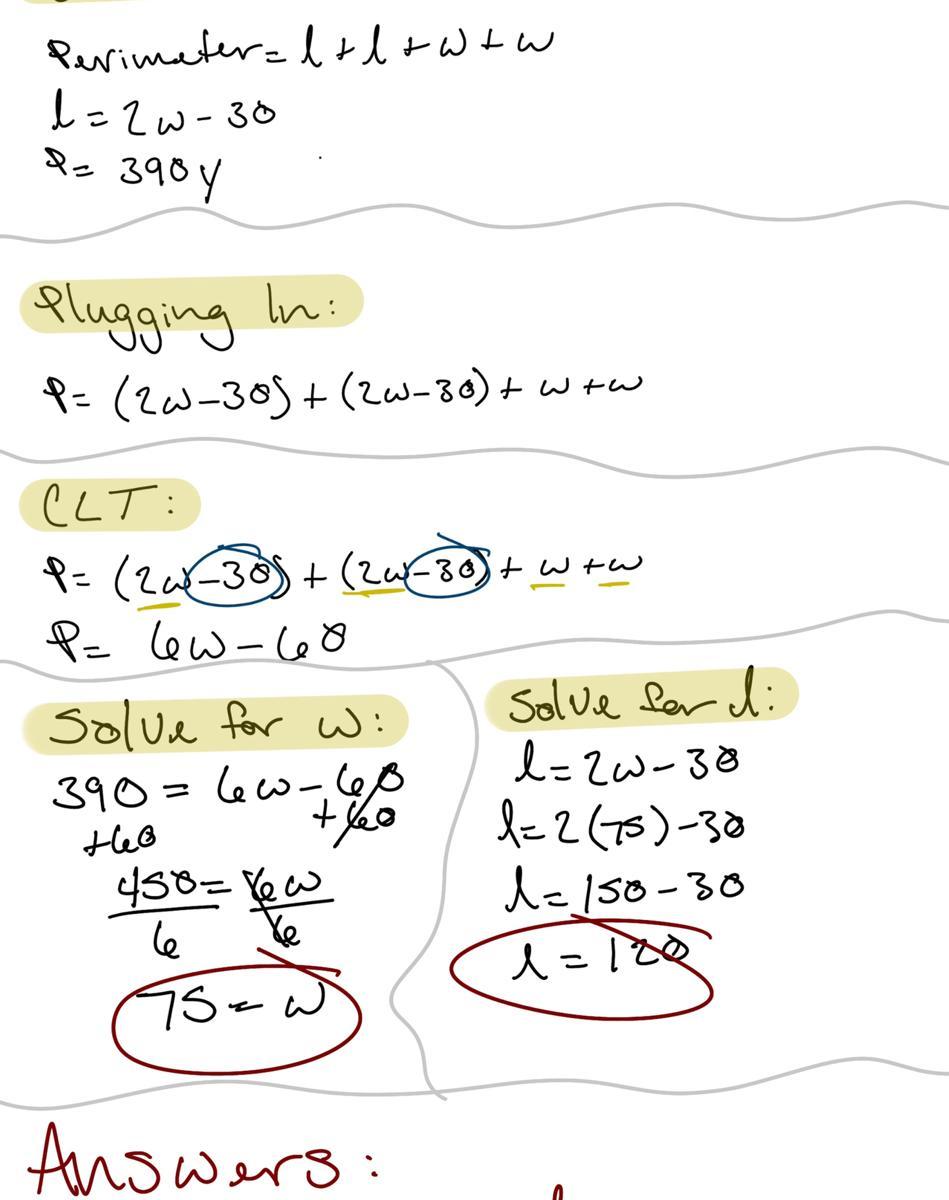 Perimeter = l + l + w + w
l = 2w - 30
P = 390y
Plugging In:
P = (2w-30) + (2w-30) + w + w
CLT:
P = (2w-30) + (2w-30) + w + w
P = 6w - 60
Solve for w:
390 = 6w - 60
+60 +60
450 = 6w
6 6
75 = w
Solve for l:
l = 2w - 30
l = 2(75) - 30
l = 150 - 30
l = 120
Answers: